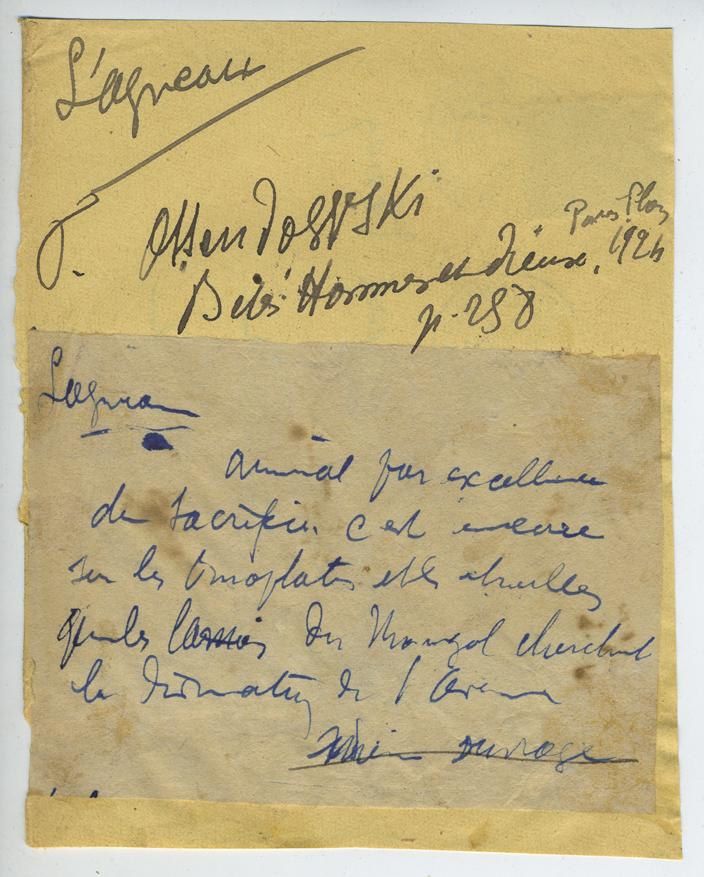 L'agneau
Ossendowski
Paris Plon
Bêtes Hommes et dieux, 1924
p. 258
L'agneau
animal par excellence
du sacrifice. c'est encore
sur les omoplates et les
que les lamas du Mongol cherchent
la de l'avenir
ouvrage